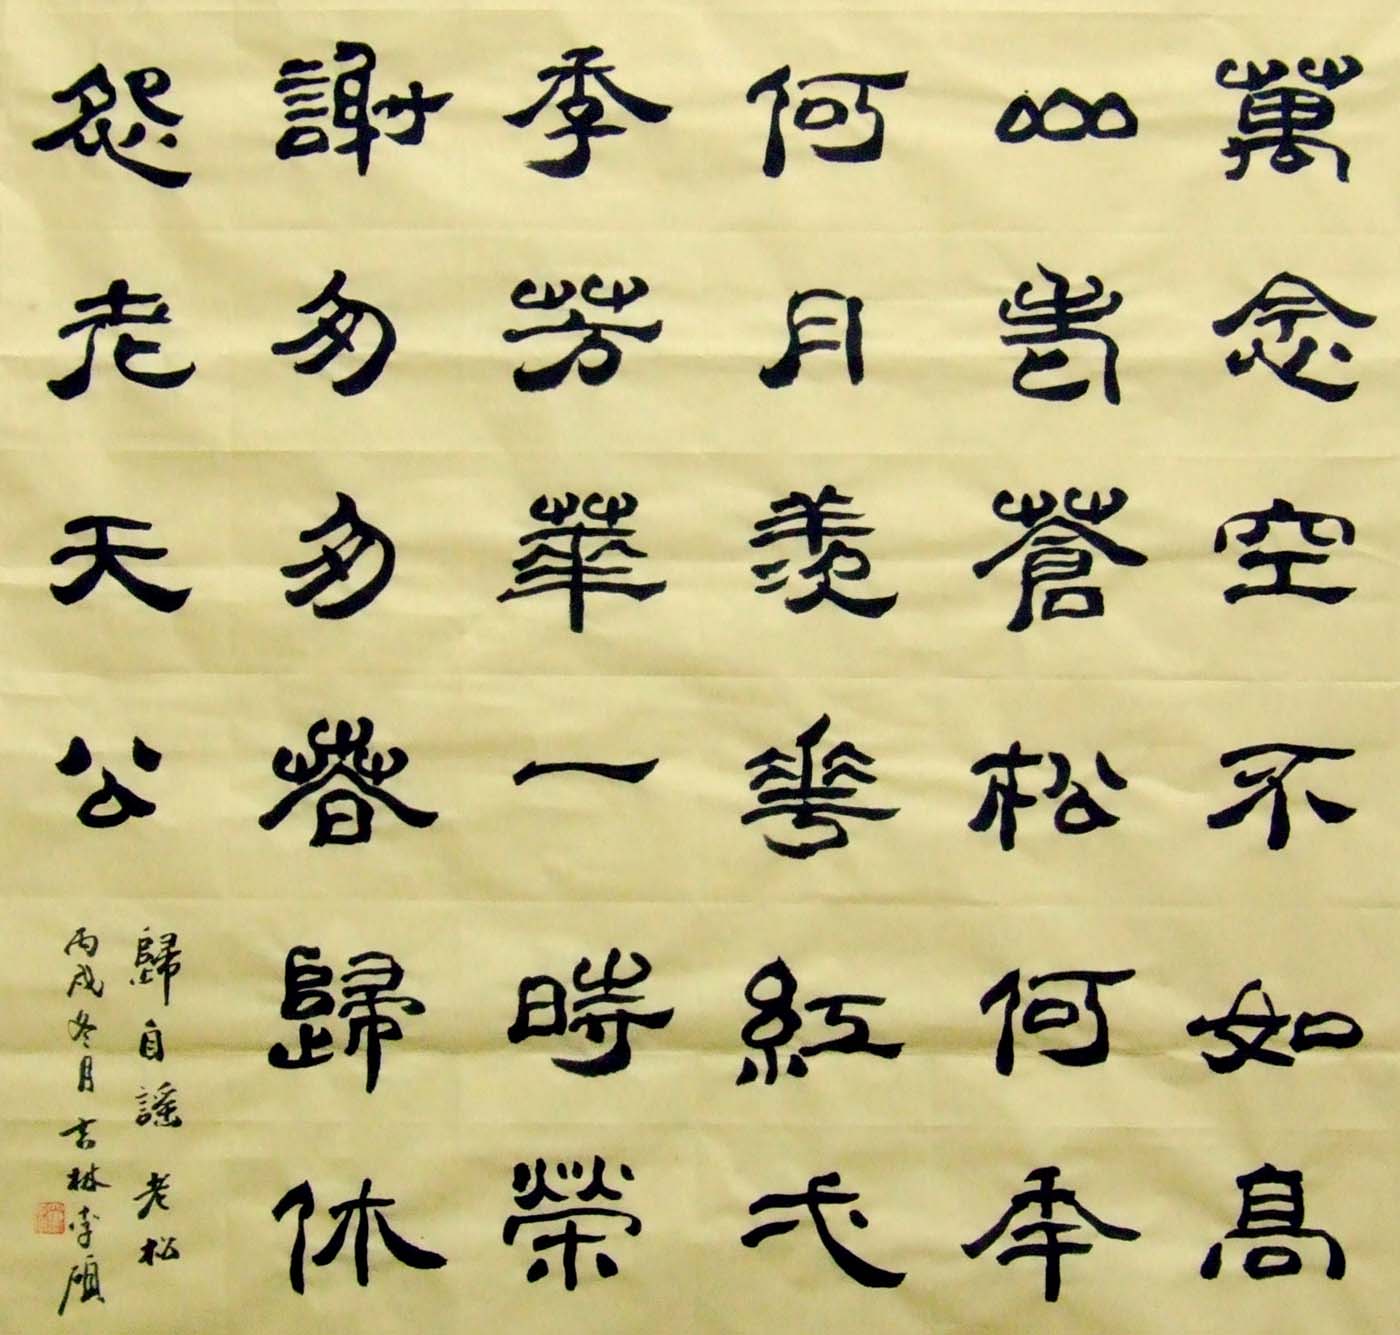 萬念空不如高
山蒼松何年
何月羨花紅弌
季芳華一時榮
謝匆匆春歸休
怨老天公
歸自謠 老松
丙戌冬月吉林李碩